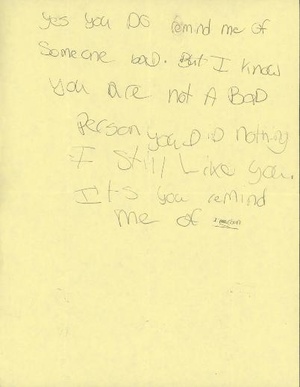 yes you DO remind me of
Someone bad. But I know
you are not A BaD
Person you DiD nothing
I Still Like you.
It's you remind
me of